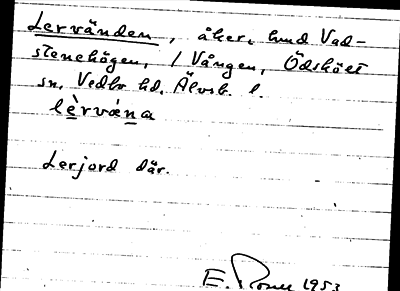 Lervänden, åker, hmd Vad-
stenehögen, 1 Vången, Ödskölt
sn, Vedbo hd, Älvsb. l.
lèrvána
Lerjord där.
E. 1953